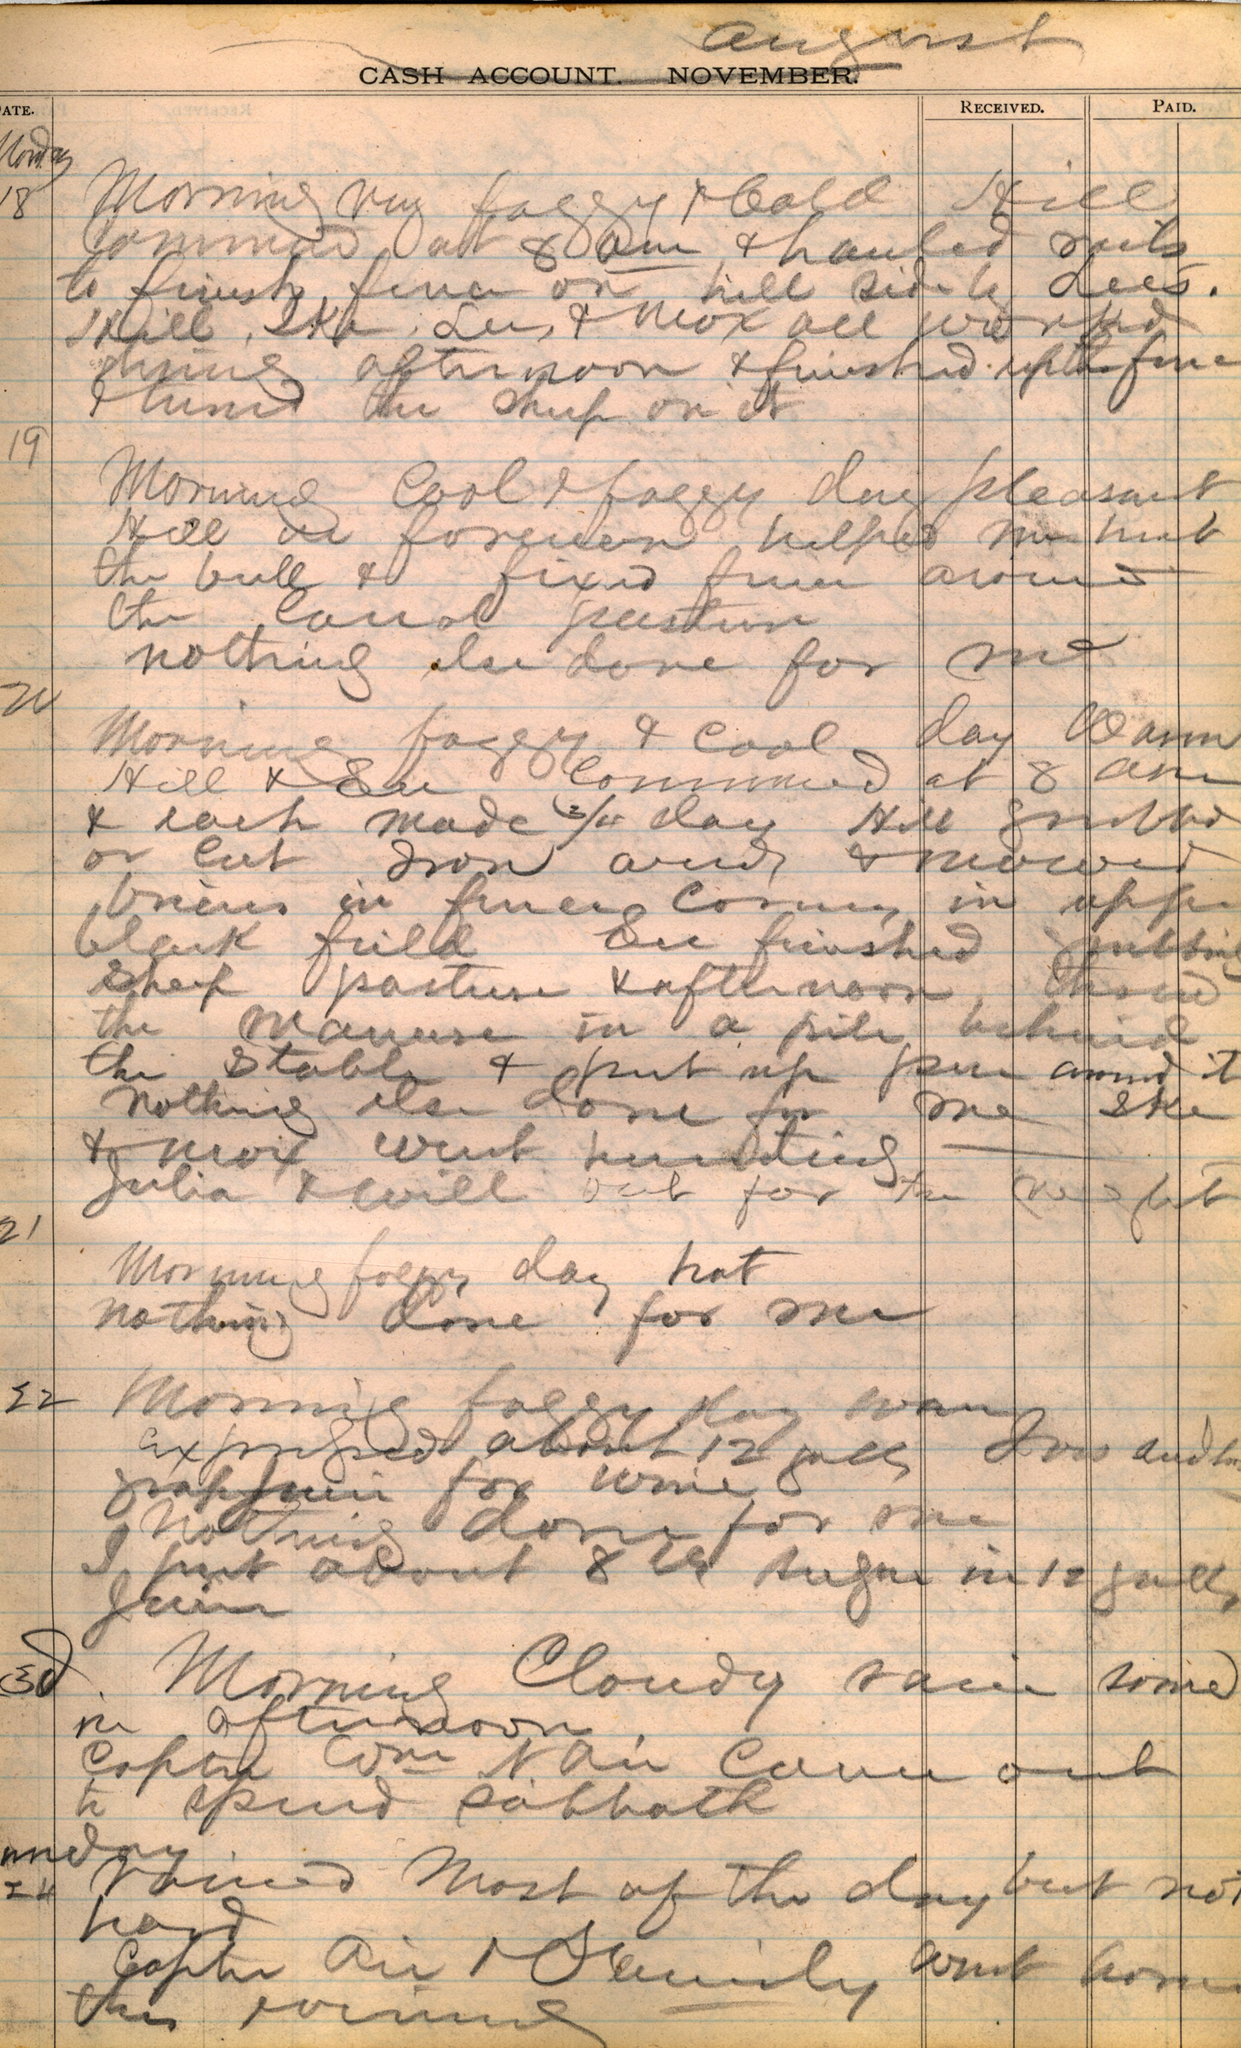 August
CASH ACCOUNT. NOVEMBER.
DATE. RECEIVED. PAID.
Monday
18 Morning very foggy & Cold Hill
commenced at 8 am & hauled rails
to finish fence on hill side by Lees.
Hill, Ike, Lee, & Mox all worked
during afternoon & finished up the fence
& turned the sheep on it
19
Morning Cool & foggy day pleasant
Hill in forenoon helped me hunt
the bull & fixed fence around
the Corral pasture
nothing else done for me
20
Morning foggy & Cool day Warm
Hill & Lee Commenced at 8 am
& each made 3/4 day Hill grubbed
or cut Iron weeds & mowed
briers in fence Corners in upper
black field Lee finished
sheep pasture & afternoon
the manure in a pile behind
the Stable & put up pen around it
Nothing else done for me Ike
& Mox went hunting
Julia & Will out for the
21
Morning foggy day hot
nothing done for me
22 Morning foggy day warm
expressed about 12 galls Ives
grape Juice for wine
Nothing done for me
I put about 8 lbs sugar in 12 galls
Juice
23d. Morning Cloudy rain some
in afternoon
Captn Wm N Air Came out
to spend sabbath
Sunday
24 rained Most of the day but not
hard
Captn Air & Family went home
this evening